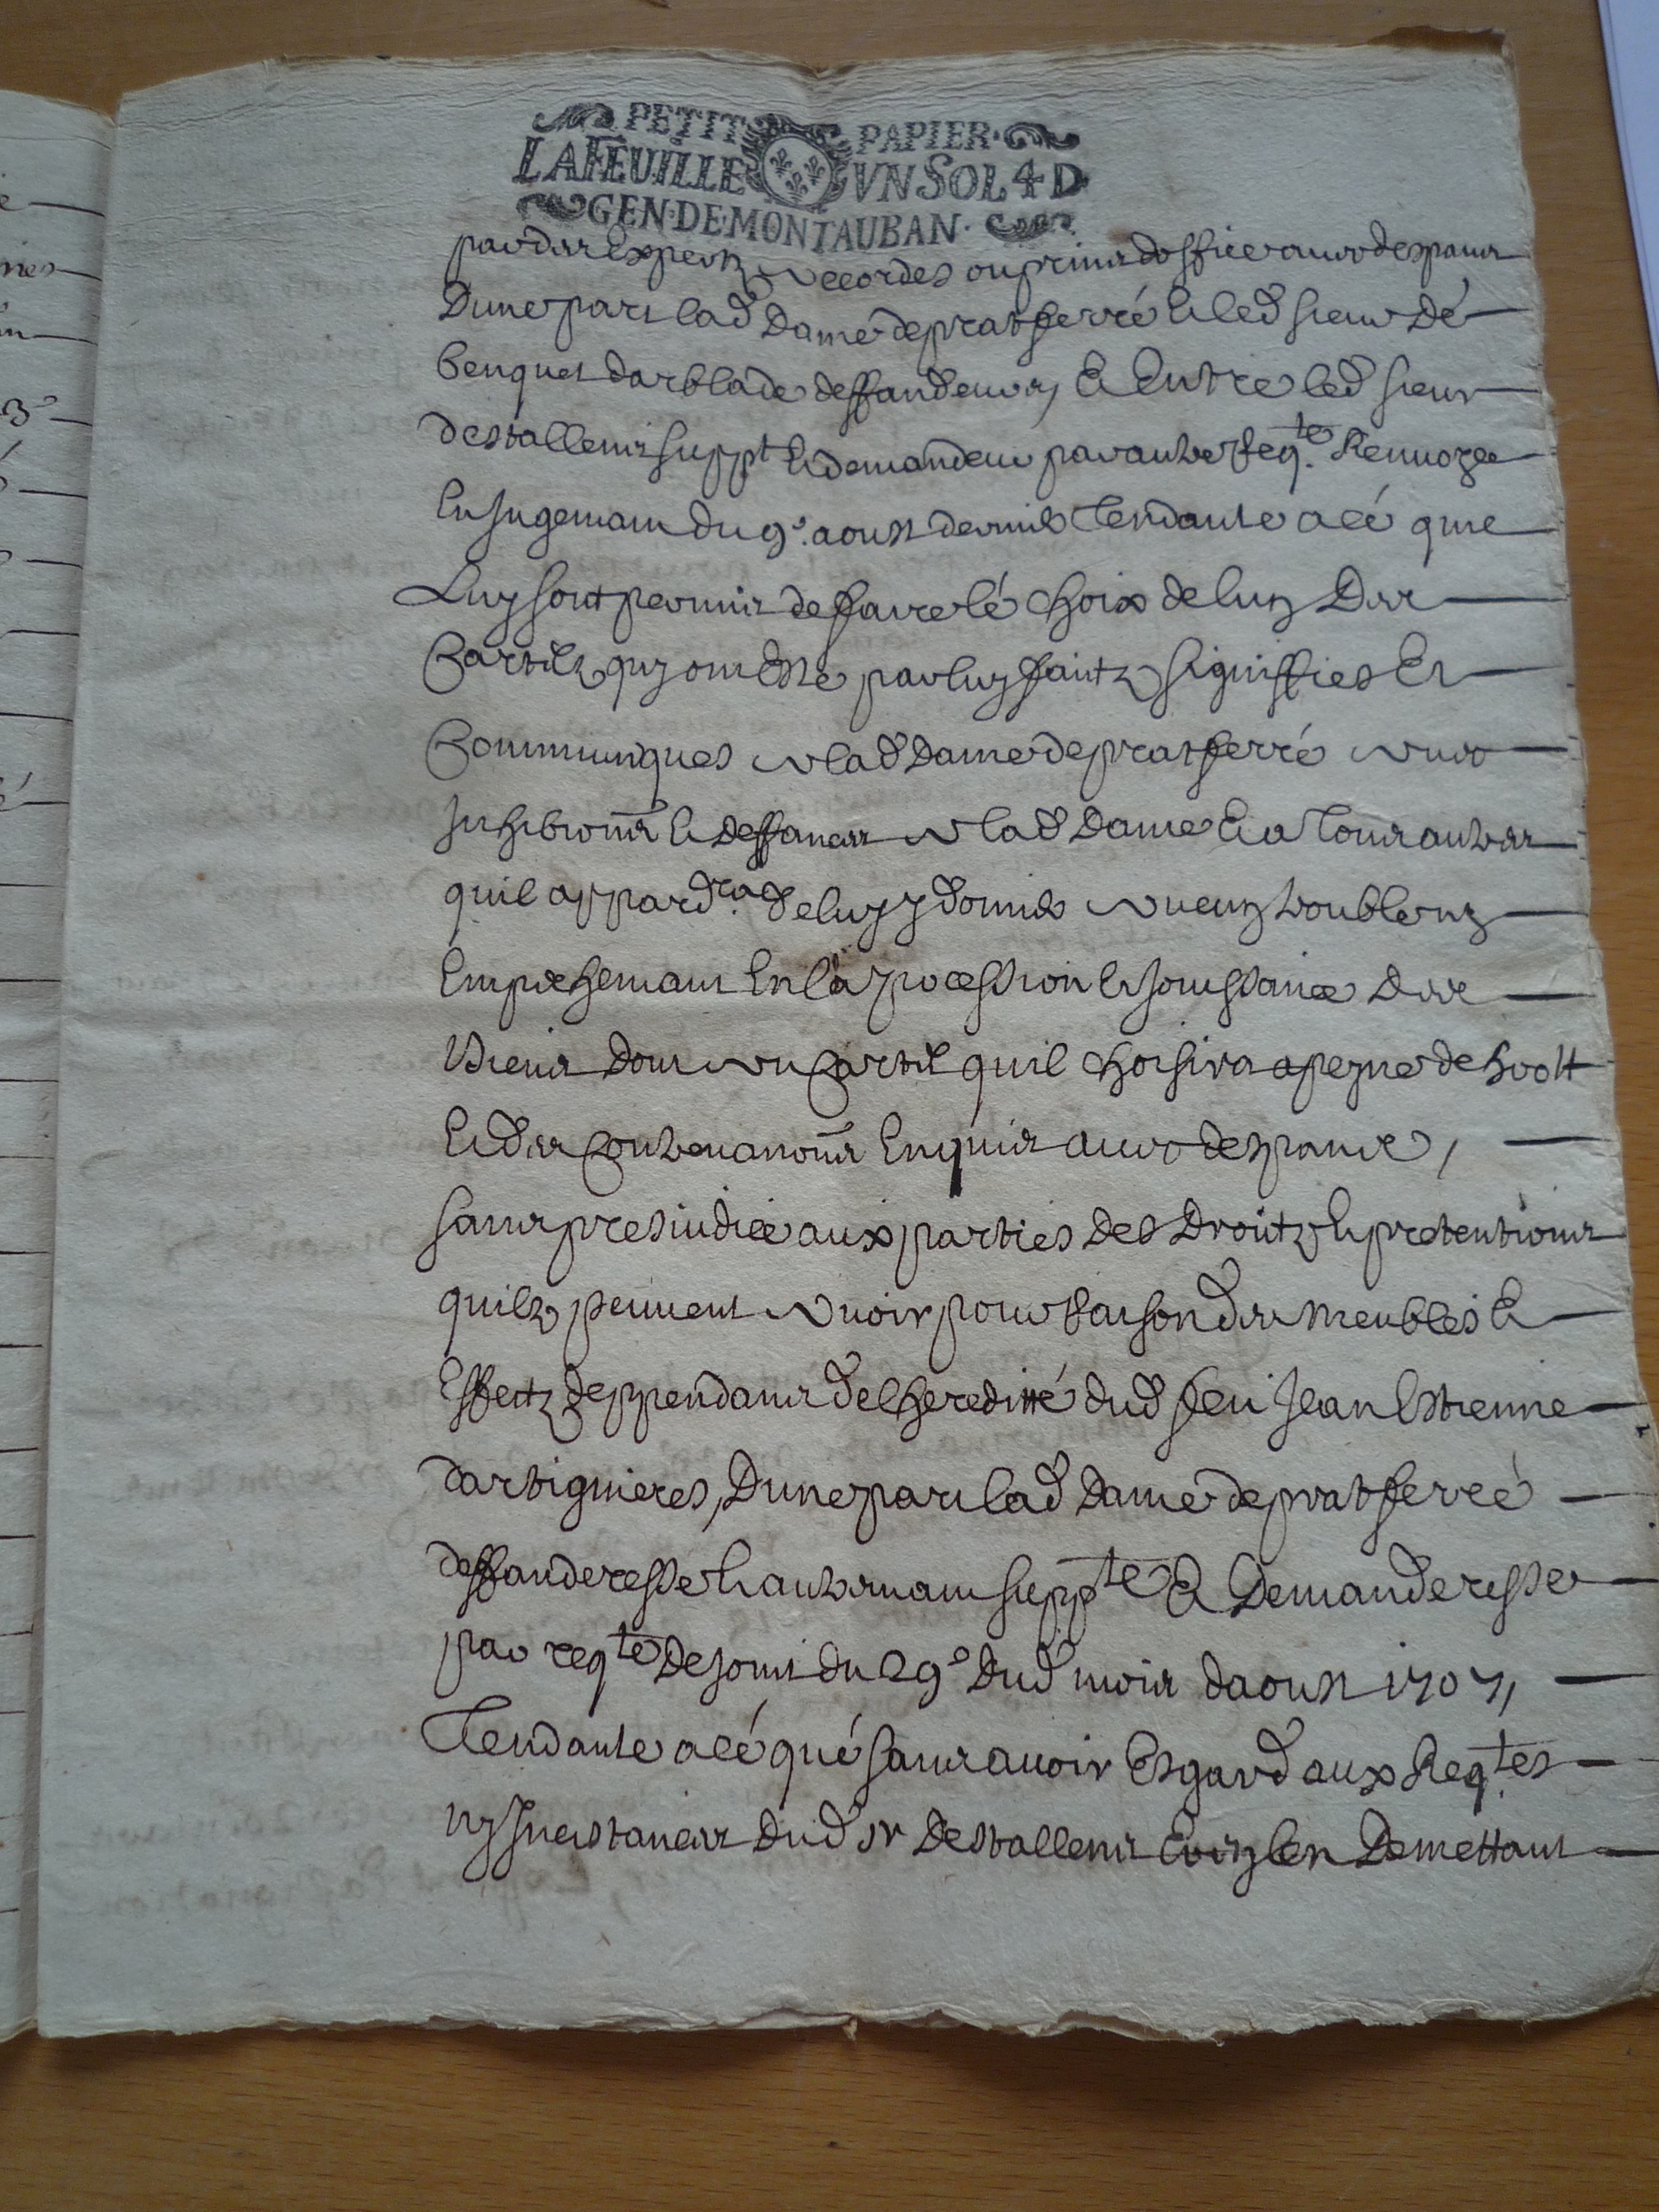 PETIT PAPIER
LA FEUILLE VN SOL 4 D
GEN. DE MONTAUBAN.
par des Expertz accordes ou prins doffice avec despans
Dune part lad Dame de pratferré & led sieur de
benquet darblade deffandeurs, & Entre led sieur
destallens supp.t & demandeur par autre Req.te Renvoyee
En jugemant du 9.e aoust dernier tendante a cé que
Luy soit permis de faire lé choix de lun Des
Cartelz quy ont Esté par luy faitz signiffies Et
Communiques a lad Dame de pratferré avec
Inhibitions & deffances a lad Dame & a tous autres
quil appard.ra de luy y donner aucun trouble ny
Empechemant En la possession & jouissance Des
biens dont au Cartel quil choisira a peyne de
& des Contrauantions Enquis avec despans,
sans presiudice aux parties des Droitz & pretentions
quilz peuvent avoir pour Raison des meubles &
Effectz deppendans de lheredité dud feu Jean Estienne
dartiguieres, Dune part lad Dame de pratferré
deffanderesse & autremant supp.te & Demanderesse
par req.te de joint du 29.e dud mois daoust 1707,
Tendante a cé qué sans avoir Esgard aux Req.tes
ny Inestances dud sr Destallens & len Demettant